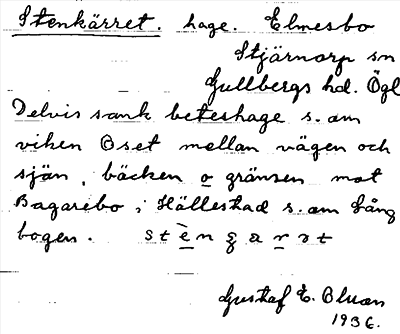 Stenkärret. hage. Elmesbo
Stjärnorp sn
Gullbergs hd. Ögl
Delvis sank beteshage s. om
viken Oset mellan vägen och
sjön, bäcken o gränsen mot
Bagarebo, i Hällestad s. om Lång
bogen. 
Gustaf E.
1936.